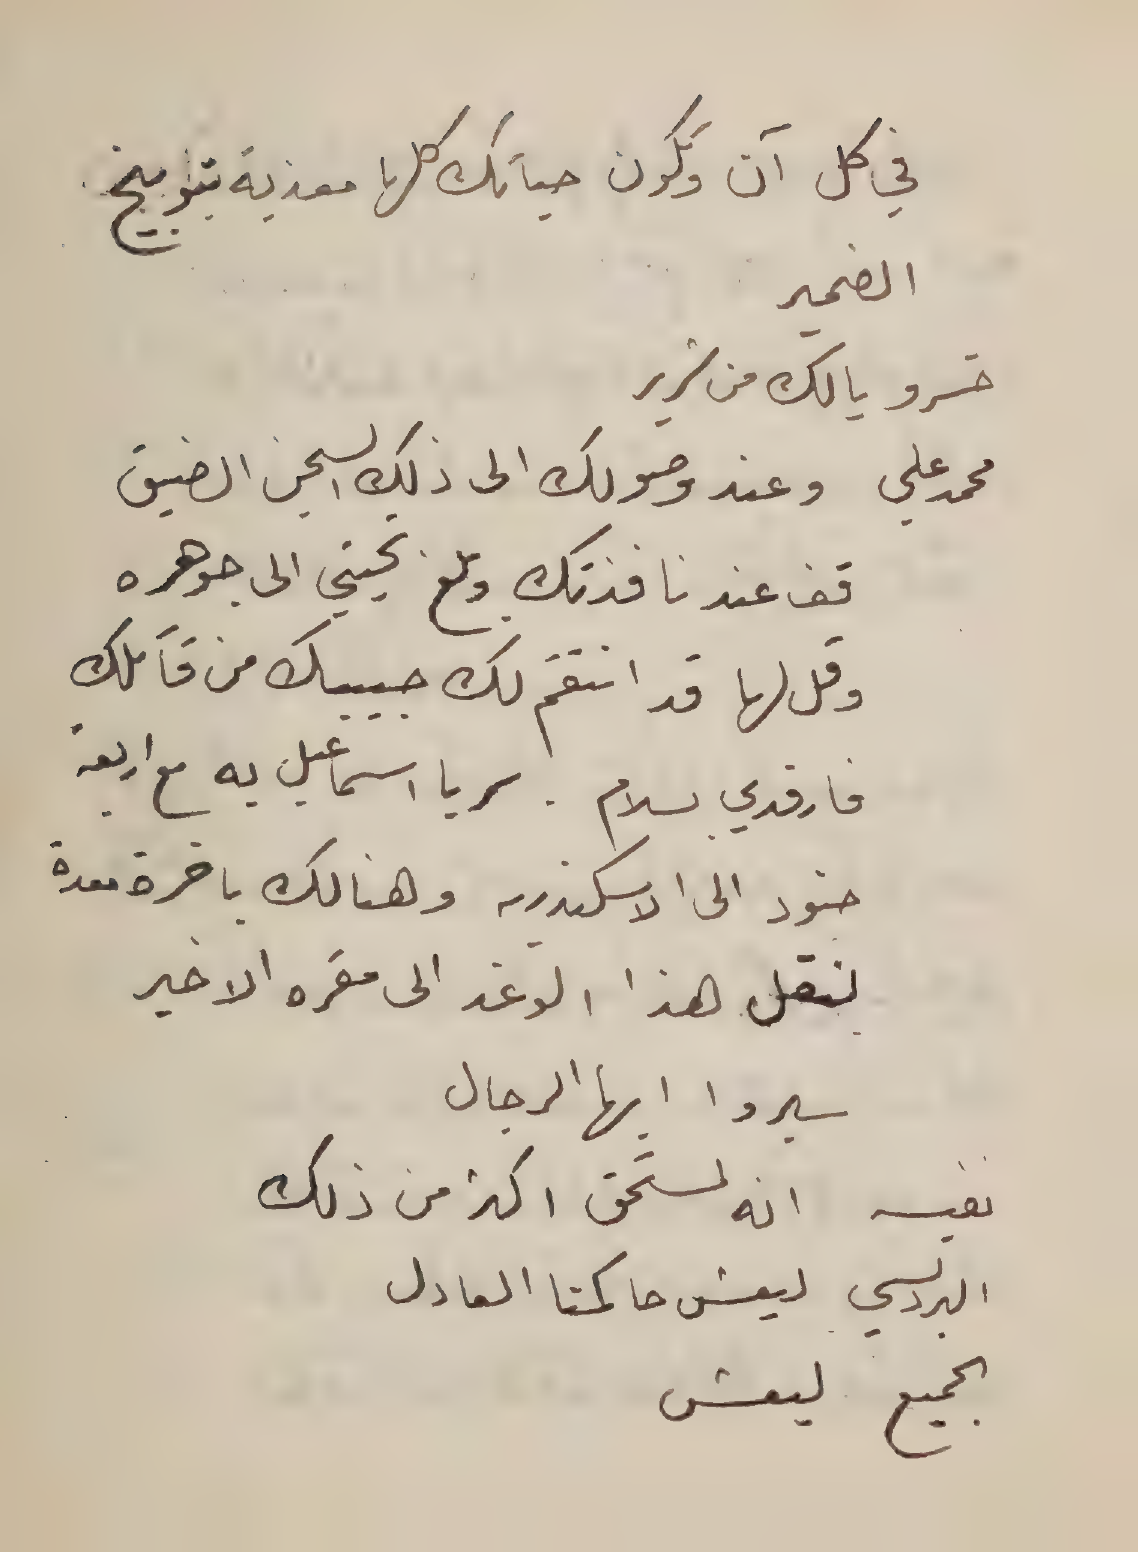 في كل آن وتكون حياتك كلها معذبة بتوبيخ
الضمير
خسرو يالك من شرير
محمد علي وعند وصولك الى ذلك السجن الضيق
قف عند نافذتك وبلغ تحيتي الى جوهره
وقل لها قد انتقم لك حبيبك من قاتلك
فارقدي بسلام . سر يا اسماعيل به مع اربعة
جنود الى الاسكندريه وهنالك باخرة معدة
لنقل هذا الوغد الى مقره الاخير
سيروا ايها الرجال
نفيسه انه لمستحق اكثر من ذلك
البرديسي ليعش حاكمنا العادل
الجميع ليعش